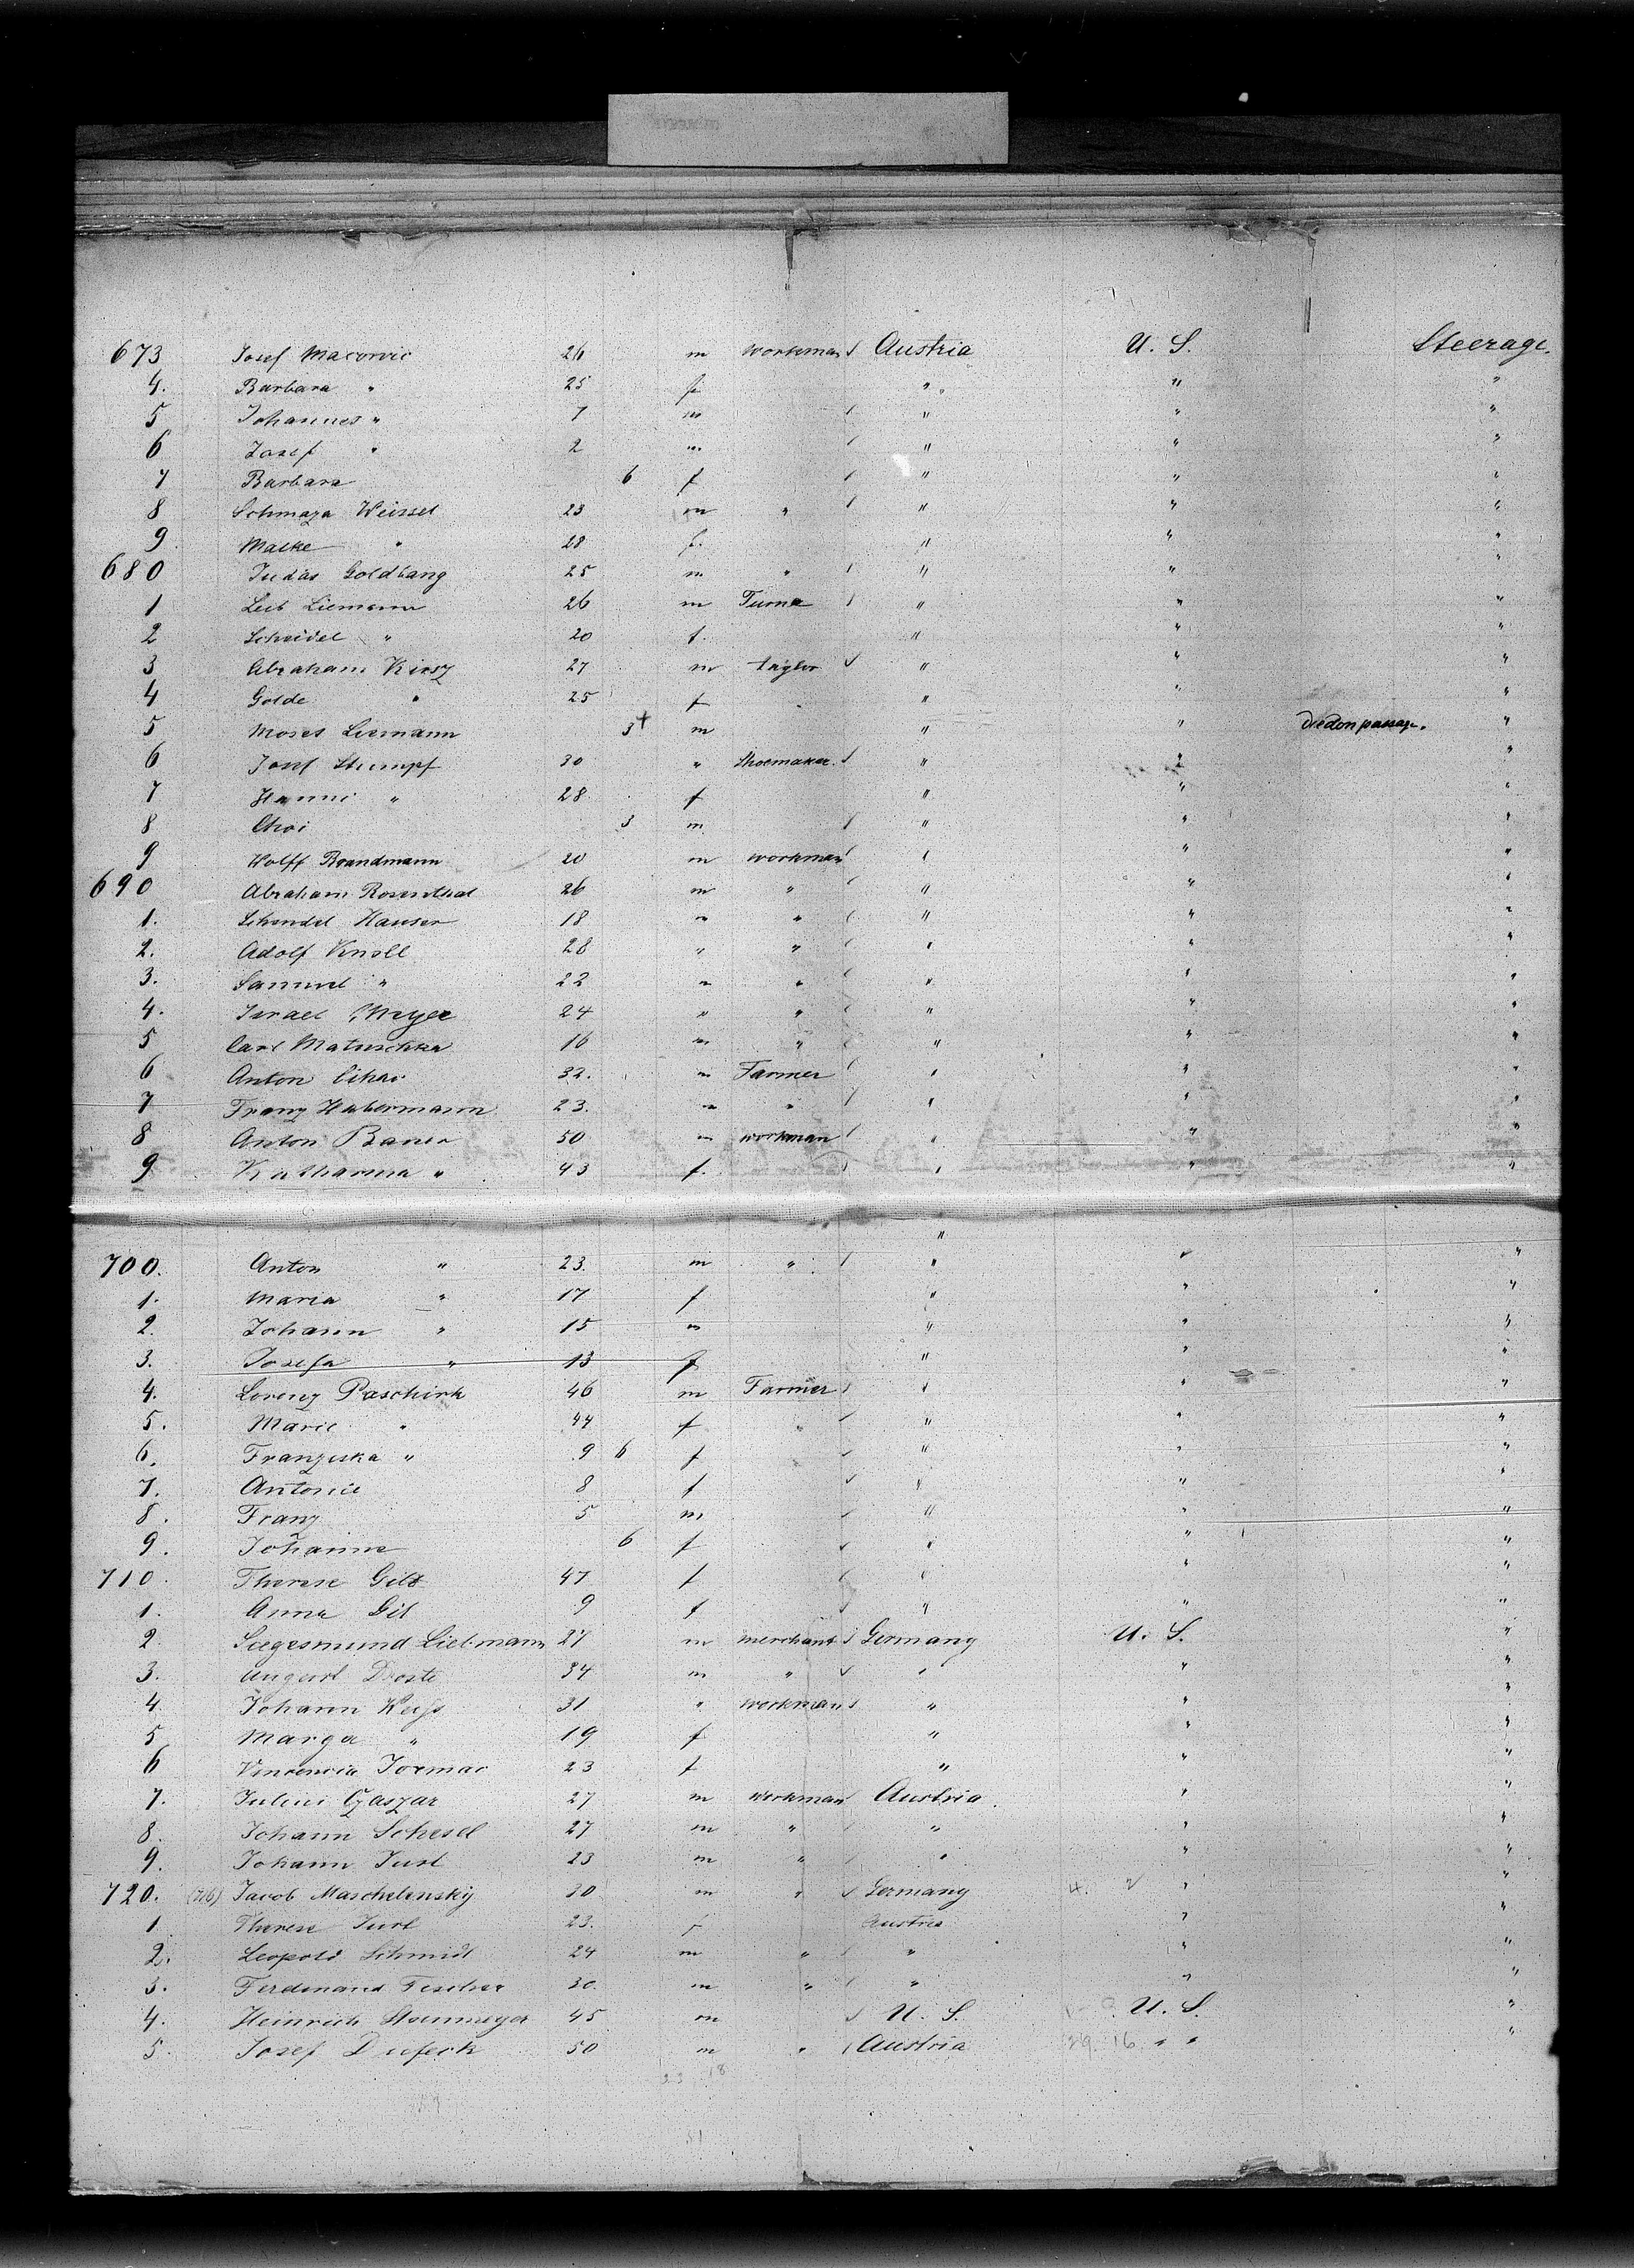 673 Josef Macorvic 26 m workman Austria U. S. Steerage.
4. Barbara " 25 f " " "
5 Johannes " 7 m " " "
6 Josef " 2 m " " "
7 Barbara 6 f " " "
8 Schmaza Weissel 23 m " " " "
9 Malke " 28 f. " " "
680 Judas Goldbang 25 m " " " "
1 Leib Liemann 26 m " " "
2 Scheidel " 20 f. " " "
3 Abraham Kirsz 27 m taylor " " "
4 Golde " 25 f " " "
5 Moses Liemann 3+ m " " died on passage. "
6 Josef Stumpf 30 " Shoemaker. " " "
7 Hanni " 28 f " " "
8 Choi 3 m " " "
9 Wolff Brandmann 20 m workman " " "
690 Abraham Rosenthal 26 m " " " "
1. Schendel Hauser 18 m " " " "
2. Adolf Knoll 28 " " " " "
3. Samuel " 22 m " " " "
4. Israel Meyer 24 " " " " "
5 Carl Matuschka 16 m " " " "
6 Anton Cihar 32. m Farmer " " "
7 Franz Habermann 23. m " " " "
8 Anton Bauer 50 m workman " " "
9 Katharina " 43 f. " " "
"
700. Anton " 23. m " " " "
1. Maria " 17 f " " "
2. Johann " 15 m " " "
3. Josefa " 13 f " " "
4. Lorenz Paschirk 46 m Farmer " " "
5. Marie " 44 f " " " "
6. Franziska " 9 6 f " " "
7. Antonie 8 f " " "
8. Franz 5 m " " "
9. Johanna 6 f " " "
710. Therese Gilt 47 f " " "
1. Anna Gil 9 f " " "
2. Siegesmund Liebmann 27 m merchant Germany U. S. "
3. August Droste 34 m " " " "
4 Johann 31 " workman " " "
5 Marga " 19 f " " "
6 23 f " " "
7. Czaszar 27 m workman Austria " "
8. Johann Schesel 27 m " " " "
9. Johann Just 23 m " " " "
720. (716) Jacob Maschelensky 30 m " Germany 4. " "
1 Therese Just 23. f Austria " "
2. Leopold Schmidt 24 m " " " "
3. Ferdinand Fischer 30. m " " " "
4. Heinrich 45 m U. S. U. S. "
5. Josef 50 m " Austria 29. 16 " " "
23 18
31